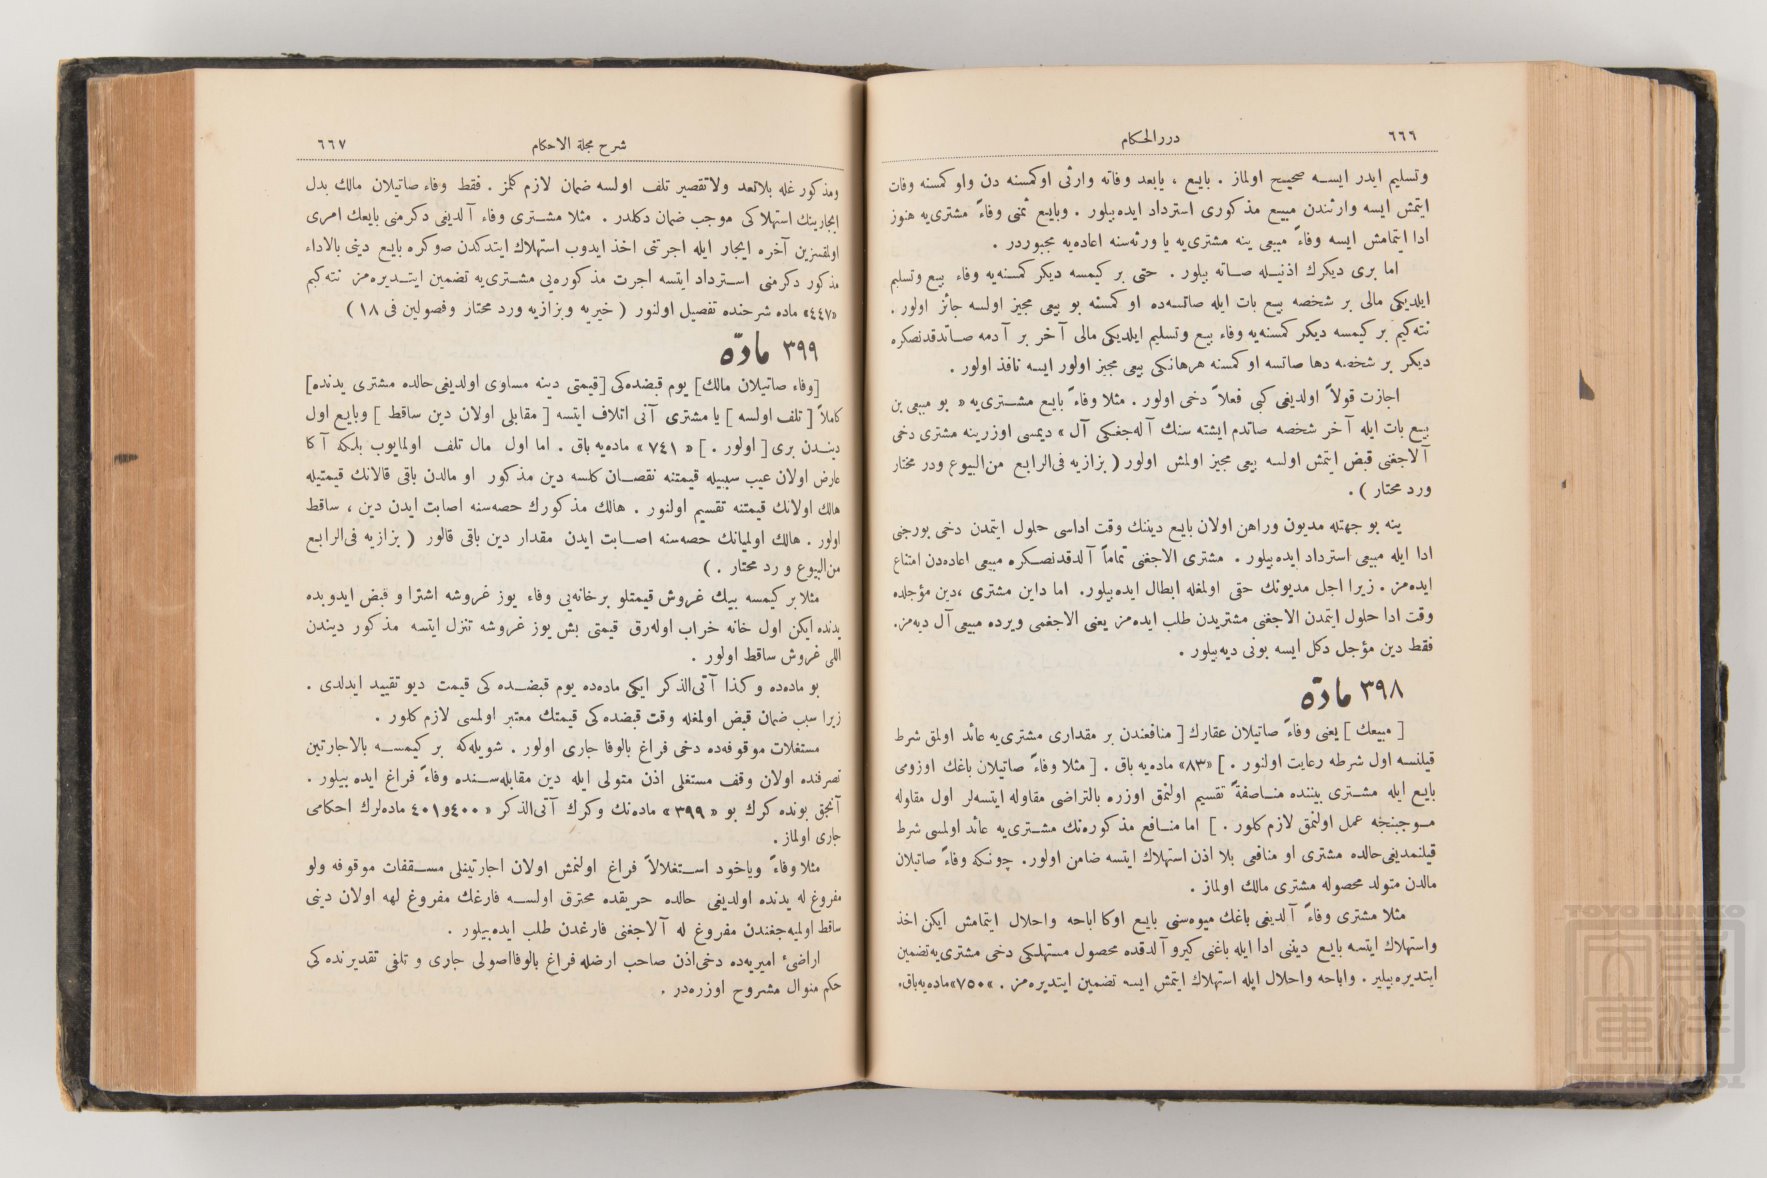 ٦٦٦
دررالحكام
وتسليم ايدر ايسه صحيح اولماز . بايع ، يابعد وفاته وارثى اوكمسنه دن واوكمسنه وفات
ايتمش ايسه وارثندن مبيع مذكورى استرداد ايده‌بيلور . وبايع ثمنى وفاءً مشترى‌يه هنوز
ادا ايتمامش ايسه وفاءً مبيعى ينه مشترى‌يه يا ورثه‌سنه اعاده‌يه مجبوردر .
اما برى ديكرك اذنيله صاته بيلور . حتى بر كيمسه ديكر كمسنه‌يه وفاء بيع وتسليم
ايلديكى مالى بر شخصه بيع بات ايله صاتسه‌ده او كمسنه بو بيعى مجيز اولسه جائز اولور .
نته‌كيم بر كيمسه ديكر كمسنه‌يه وفاء بيع وتسليم ايلديكى مالى آخر بر آدمه صاتدقدنصكره
ديكر بر شخصه دها صاتسه او كمسنه هرهانكى بيعى مجيز اولور ايسه نافذ اولور .
اجازت قولاً اولديغى كبى فعلاً دخى اولور . مثلا وفاءً بايع مشترى‌يه « بو مبيعى بن
بيع بات ايله آخر شخصه صاتدم ايشته سنك آله‌جغكى آل » ديمسى اوزرينه مشترى دخى
آلاجغنى قبض ايتمش اولسه بيعى مجيز اولمش اولور ( بزازيه فى‌الرابع من‌البيوع ودر مختار
ورد محتار ) .
ينه بو جهتله مديون وراهن اولان بايع دينك وقت اداسى حلول ايتمدن دخى بورجنى
ادا ايله مبيعى استرداد ايده‌بيلور . مشترى الاجغنى تماماً آلدقدنصكره مبيعى اعاده‌دن امتناع
ايده‌مز . زيرا اجل مديونك حقى اولمغله ابطال ايده‌بيلور. اما داين مشترى ،دين مؤجلده
وقت ادا حلول ايتمدن الاجغنى مشتريدن طلب ايده‌مز يعنى الاجغمى ويرده مبيعى آل ديه‌مز.
فقط دين مؤجل دكل ايسه بونى ديه‌بيلور .
٣٩٨ مادّه
[ مبيعك ] يعنى وفاءً صاتيلان عقارك [ منافعندن بر مقدارى مشترى‌يه عائد اولمق شرط
قيلنسه اول شرطه رعايت اولنور . ] «٨٣» ماده‌يه باق . [ مثلا وفاءً صاتيلان باغك اوزومى
بايع ايله مشترى بيننده مناصفةً تقسيم اولنمق اوزره بالتراضى مقاوله ايتسه‌لر اول مقاوله
موجبنجه عمل اولنمق لازم كلور . ] اما منافع مذكوره‌نك مشترى‌يه عائد اولمسى شرط
قيلنمديغى‌حالده مشترى او منافعى بلا اذن استهلاك ايتسه ضامن اولور. چونكه وفاءً صاتيلان
مالدن متولد محصوله مشترى مالك اولماز .
مثلا مشترى وفاءً آلديغى باغك ميوه‌سنى بايع اوكا اباحه واحلال ايتمامش ايكن اخذ
واستهلاك ايتسه بايع دينى ادا ايله باغنى كيرو آلدقده محصول مستهلكى دخى مشترى‌يه‌تضمين
ايتديره‌بيلير . واباحه واحلال ايله استهلاك ايتمش ايسه تضمين ايتديره‌مز . «٧٥٠»ماده‌يه‌باق.
شرح مجلة الاحكام
٦٦٧
ومذكور غله بلاتعد ولاتقصير تلف اولسه ضمان لازم كلمز . فقط وفاء صاتيلان مالك بدل
ايجارينك استهلاكى موجب ضمان دكلدر . مثلا مشترى وفاء آلديغى دكرمنى بايعك امرى
اولمقسزين آخره ايجار ايله اجرتنى اخذ ايدوب استهلاك ايتدكدن صوكره بايع دينى بالاداء
مذكور دكرمنى استرداد ايتسه اجرت مذكوره‌يى مشترى‌يه تضمين ايتديره‌مز نته‌كيم
«٤٤٧» ماده شرحنده تفصيل اولنور ( خيريه وبزازيه ورد محتار وفصولين فى ١٨ )
٣٩٩ مادّه
[وفاء صاتيلان مالك] يوم قبضده‌كى [قيمتى دينه مساوى اولديغى‌حالده مشترى يدنده]
كاملاً [ تلف اولسه ] يا مشترى آنى اتلاف ايتسه [ مقابلى اولان دين ساقط ] وبايع اول
ديندن برى [ اولور . ] « ٧٤١ » ماده‌يه باق . اما اول مال تلف اولمايوب بلكه آكا
عارض اولان عيب سببيله قيمتنه نقصان كلسه دين مذكور او مالدن باقى قالانك قيمتيله
هالك اولانك قيمتنه تقسيم اولنور . هالك مذكورك حصه‌سنه اصابت ايدن دين ، ساقط
اولور . هالك اولميانك حصه‌سنه اصابت ايدن مقدار دين باقى قالور ( بزازيه فى‌الرابع
من‌البيوع و رد محتار . )
مثلا بر كيمسه بيك غروش قيمتلو برخانه‌يى وفاء يوز غروشه اشترا و قبض ايدوبده
يدنده ايكن اول خانه خراب اوله‌رق قيمتى بش يوز غروشه تنزل ايتسه مذكور ديندن
اللى غروش ساقط اولور .
بو ماده‌ده وكذا آتى‌الذكر ايكى ماده‌ده يوم قبضده كى قيمت ديو تقييد ايدلدى .
زيرا سبب ضمان قبض اولمغله وقت قبضده كى قيمتك معتبر اولمسى لازم كلور .
مستغلات موقوفه‌ده دخى فراغ بالوفا جارى اولور . شويله‌كه بر كيمسه بالاجارتين
تصرفنده اولان وقف مستغلى اذن متولى ايله دين مقابله‌سنده وفاءً فراغ ايده بيلور .
آنجق بونده كرك بو « ٣٩٩ » ماده‌نك وكرك آتى‌الذكر « ٤٠٠و٤٠١ ماده‌لرك احكامى
جارى اولماز .
مثلا وفاءً وياخود استغلالاً فراغ اولنمش اولان اجارتينلى مسقفات موقوفه ولو
مفروغ له يدنده اولديغى حالده حريقده محترق اولسه فارغك مفروغ لهه اولان دينى
ساقط اولميه‌جغندن مفروغ له آلاجغنى فارغدن طلب ايده‌بيلور .
اراضىء اميريه‌ده دخى‌اذن صاحب ارضله فراغ بالوفااصولى جارى و تلفى تقديرنده كى
حكم منوال مشروح اوزره‌در .
TOYO BUNKO
東洋文庫
TOYO BUNKO